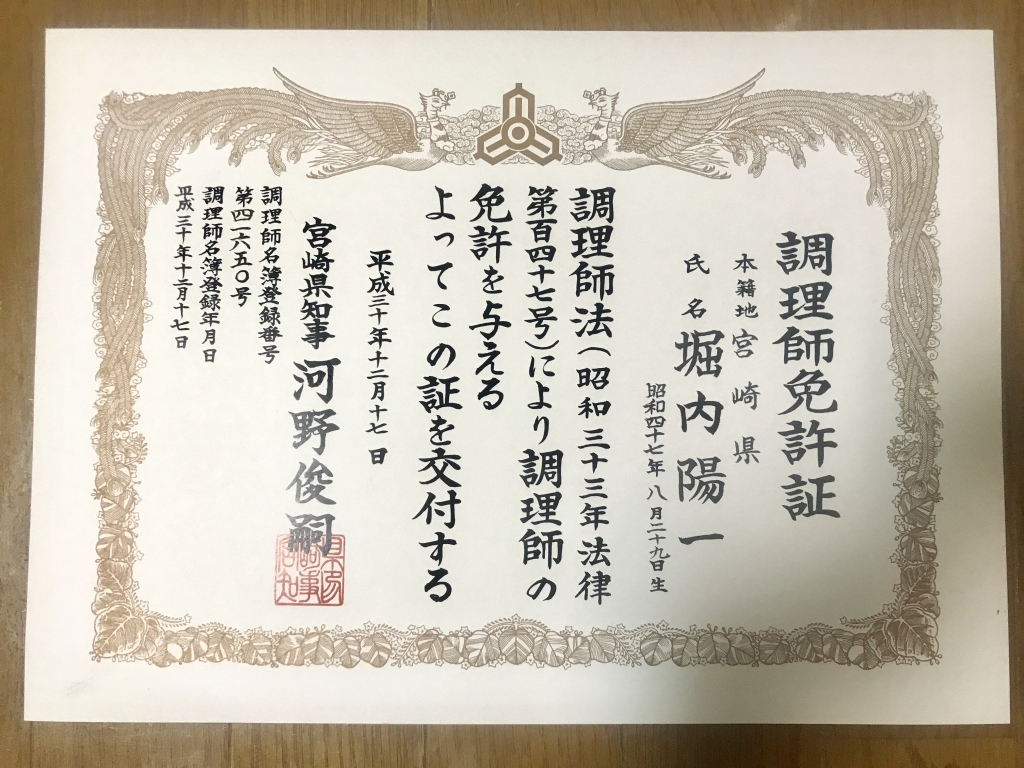 調理師免許証
本籍地 宮崎県
氏名 堀内陽一
昭和四十七年八月二十九日生
調理師法（昭和三十三年法律
第百四十七号）により調理師の
免許を与える
よってこの証を交付する
平成三十年十二月十七日
宮崎県知事 河野俊嗣
調理師名簿登録番号
第四一六五〇号
調理師名簿登録年月日
平成三十年十二月十七日